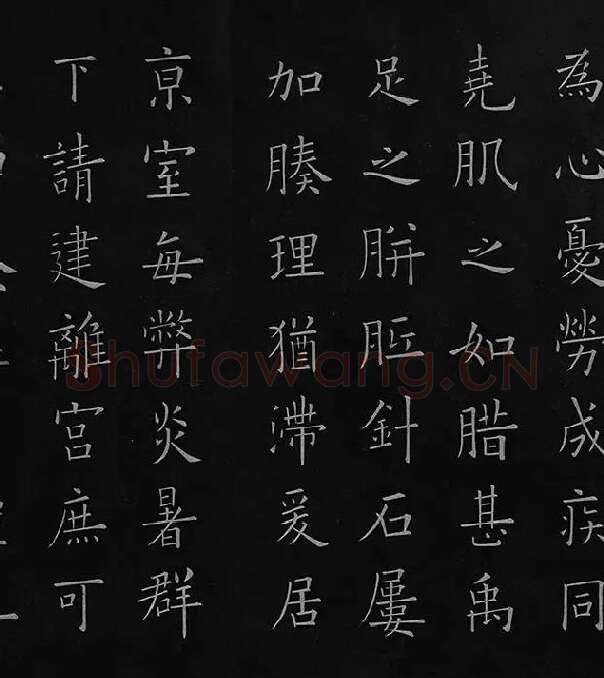 為心憂勞成疾同
堯肌之如腊甚禹
足之胼胝針石屢
加腠理猶滯爰居
京室每弊炎暑群
下請建離宮庶可
Shufawang.CN